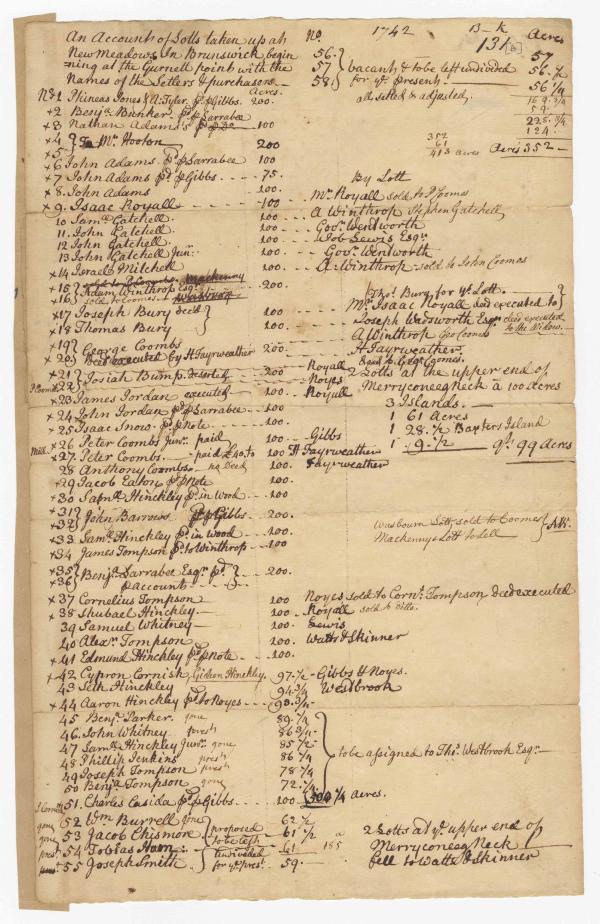 An Account of Lotts taken up at
New Meadows In Brunswick begin
=ning at the Gurnell point with the
Names of the Setlers & purchasers
No. 1742 B-K
131 Acres
56. 57
57 vacant & to be left undivided 56.½
58. for ye. present 56¼
all setled & adjusted, 169.¾
59.
228.¾
124.
352
61
413 acres Acres 352
Acres.
No. 1 Phineas Jones & A: Tyler pd. p Gibbs. 200.
+2 Benja. Bunker pd. p Larrabee
+3 Nathan Adams 100
+4 To Mr. Hooton 200
+5
+6 John Adams pd. p Larrabee 100
+7 John Adams pd. p Gibbs 75. By Lott
+8. John Adams 100. Mr. Royall sold to
+9. Isaac Royall 100 A Winthrop Stephen Gatchell
10 Saml. Gatchell 100 Govr. Wentworth
11. John Gatchell. 100. Job Lewis Esqr.
12 John Gatchell 100. Govr. Wentworth
13 John Gatchell Junr. 100 A: Winthrop sold to John Coomes
+14 Israel Mitchell 100.
+15
+16 Adam Winthrop Esqr. 200. Thos. Bury for ye. Lott.
sold to Coomes
+17 Joseph Bury 100 Mr. Isaac Royall deed executed to
+18 Thomas Bury 100. Joseph Wadsworth Esqr. deed executed to the Widow
A Winthrop Geo Coombs
+19
+20. George Coombs 200 H Fayrweather
Deed executed by H Fayrweather
+21
22 Josiah Bump. 200. Royall
Noyes
+23 James Jordan executed 100 Royall
2 Lotts at the upper end of
Merryconeeg Neck a 100 acres
+24 John Jordan pd. p Larrabee 100. 3 Islands.
+25 Isaac Snow. pd. p Note 100. 1 61 Acres
+26 Peter Coombs Junr. paid 100. Gibbs 1 28.½ Baxters Island
+27. Peter Coombs. paid £40. to 100. H Fayrweather 1 9.½ qt. 99 Acres
28 Anthony Coombs no Deed 100. Fayrweather
+29 Jacob Eaton pd. p Note 100.
+30 Saml. Hinckley pd. in Wood 100.
+31
+32 John Barrows pd. p Gibbs 200.
+33 Saml. Hinckley pd. in wood 100.
+34 James Tompson pd. to Winthrop 100
Lott sold to Coomes
Mackennys Lott to
+35
+36 Benja. Larrabee Esqr. pd. 200.
p account
+37 Cornelius Tompson 100 Noyes sold to Corns. Tompson deed executed
+38 Shubael Hinckley 100 Royall sold to ditto.
39 Samuel Whitney 100. Lewis
40 Alexr. Tompson 100. Watts & Skinner
+41 Edmund Hinckley pd. p Note 100.
+42 Cypron Cornish Gideon Hinckley. 97.½ Gibbs H Noyes.
43 Seth Hinckley 94¾ Westbrook
+44 Aaron Hinckley pd. to Noyes
45 Benja. Parker. gone 89.¼
46. John Whitney. presh 86¾
47 Saml. Hinckley Junr. gone 85½
48 Phillip Jenkins presh 86¼ to be assigned to Thos. Westbrook Esqr.
49 Joseph Tompson presh 78¼
50 Benja. Tompson gone 72.½
51. Charles Casida pd. p Gibbs 100 Acres.
gone 52 Wm Burrell gone 62½
gone 53 Jacob Chismore proposed 61½ 2 Lotts at ye. upper end of
presh 54 Tobias Ham to be left 61 185 Merryconeeg Neck
55 Joseph Smith undivided for ye. pres. 59. fell to Watts & Skinner